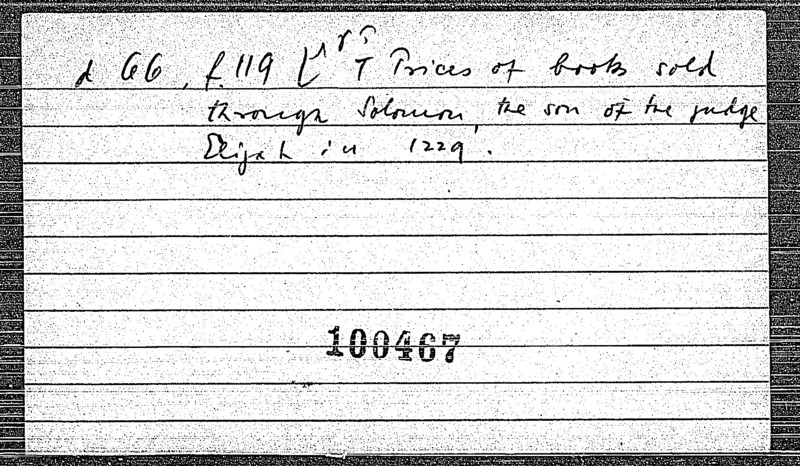 d 66, f. 119 T Prices of books sold
through Solomon, the son of the judge
Elijah in 1229.
100467